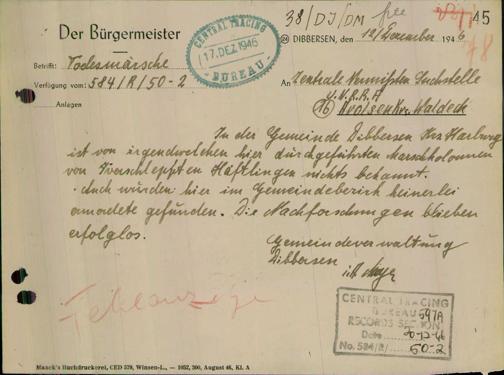 Der Bürgermeister
38/DJ/DM free
45
78
CENTRAL TRACING
17. DEZ 1946
BUREAU
(24) DIBBERSEN, den 12/Dezember 1946
Betrifft: Todesmärsche
Verfügung vom: 584/R/50-2
Anlagen
An Zentrale Vermißten Suchstelle
U.N.R.R.A
(16) Arolsen Kr. Waldeck
In der Gemeinde Dibbersen Krs Harburg
ist von irgendwelchen hier durchgeführten Marschkolonnen
von Verschleppten Häftlingen nichts bekannt.
Auch würden hier im Gemeindeberich keinerlei
emordete gefunden. Die Nachforschungen blieben
erfolglos.
Gemeindeverwaltung
Dibbersen
CENTRAL TRACING
BUREAU 547A
RECORDS SECTION
Date 20-12-46
No. 584/R/ 50-2
Maack's Buchdruckerei, CED 579, Winsen-L., — 1052, 300, August 46, Kl. A